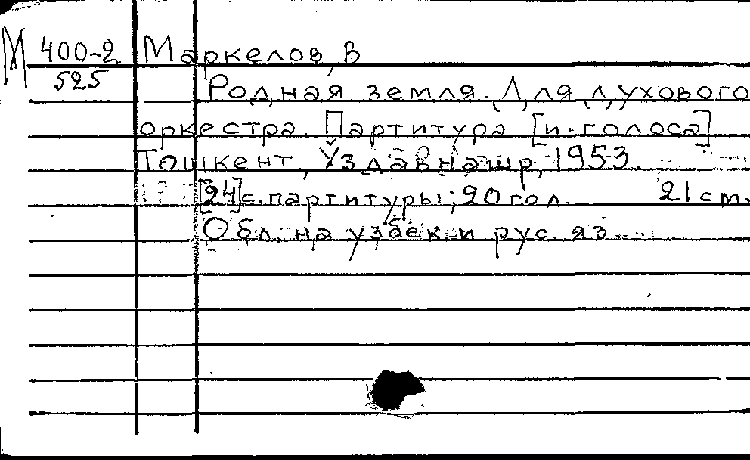 М 400-2 Маркелов, В
525 Родная земля. Для духового
оркестра. Партитура [и голоса]
Тошкент, Ўздавнашр, 1953
[24]с. партитуры; 20 гол. 21 см.
Обл. на узбек и рус. яз.